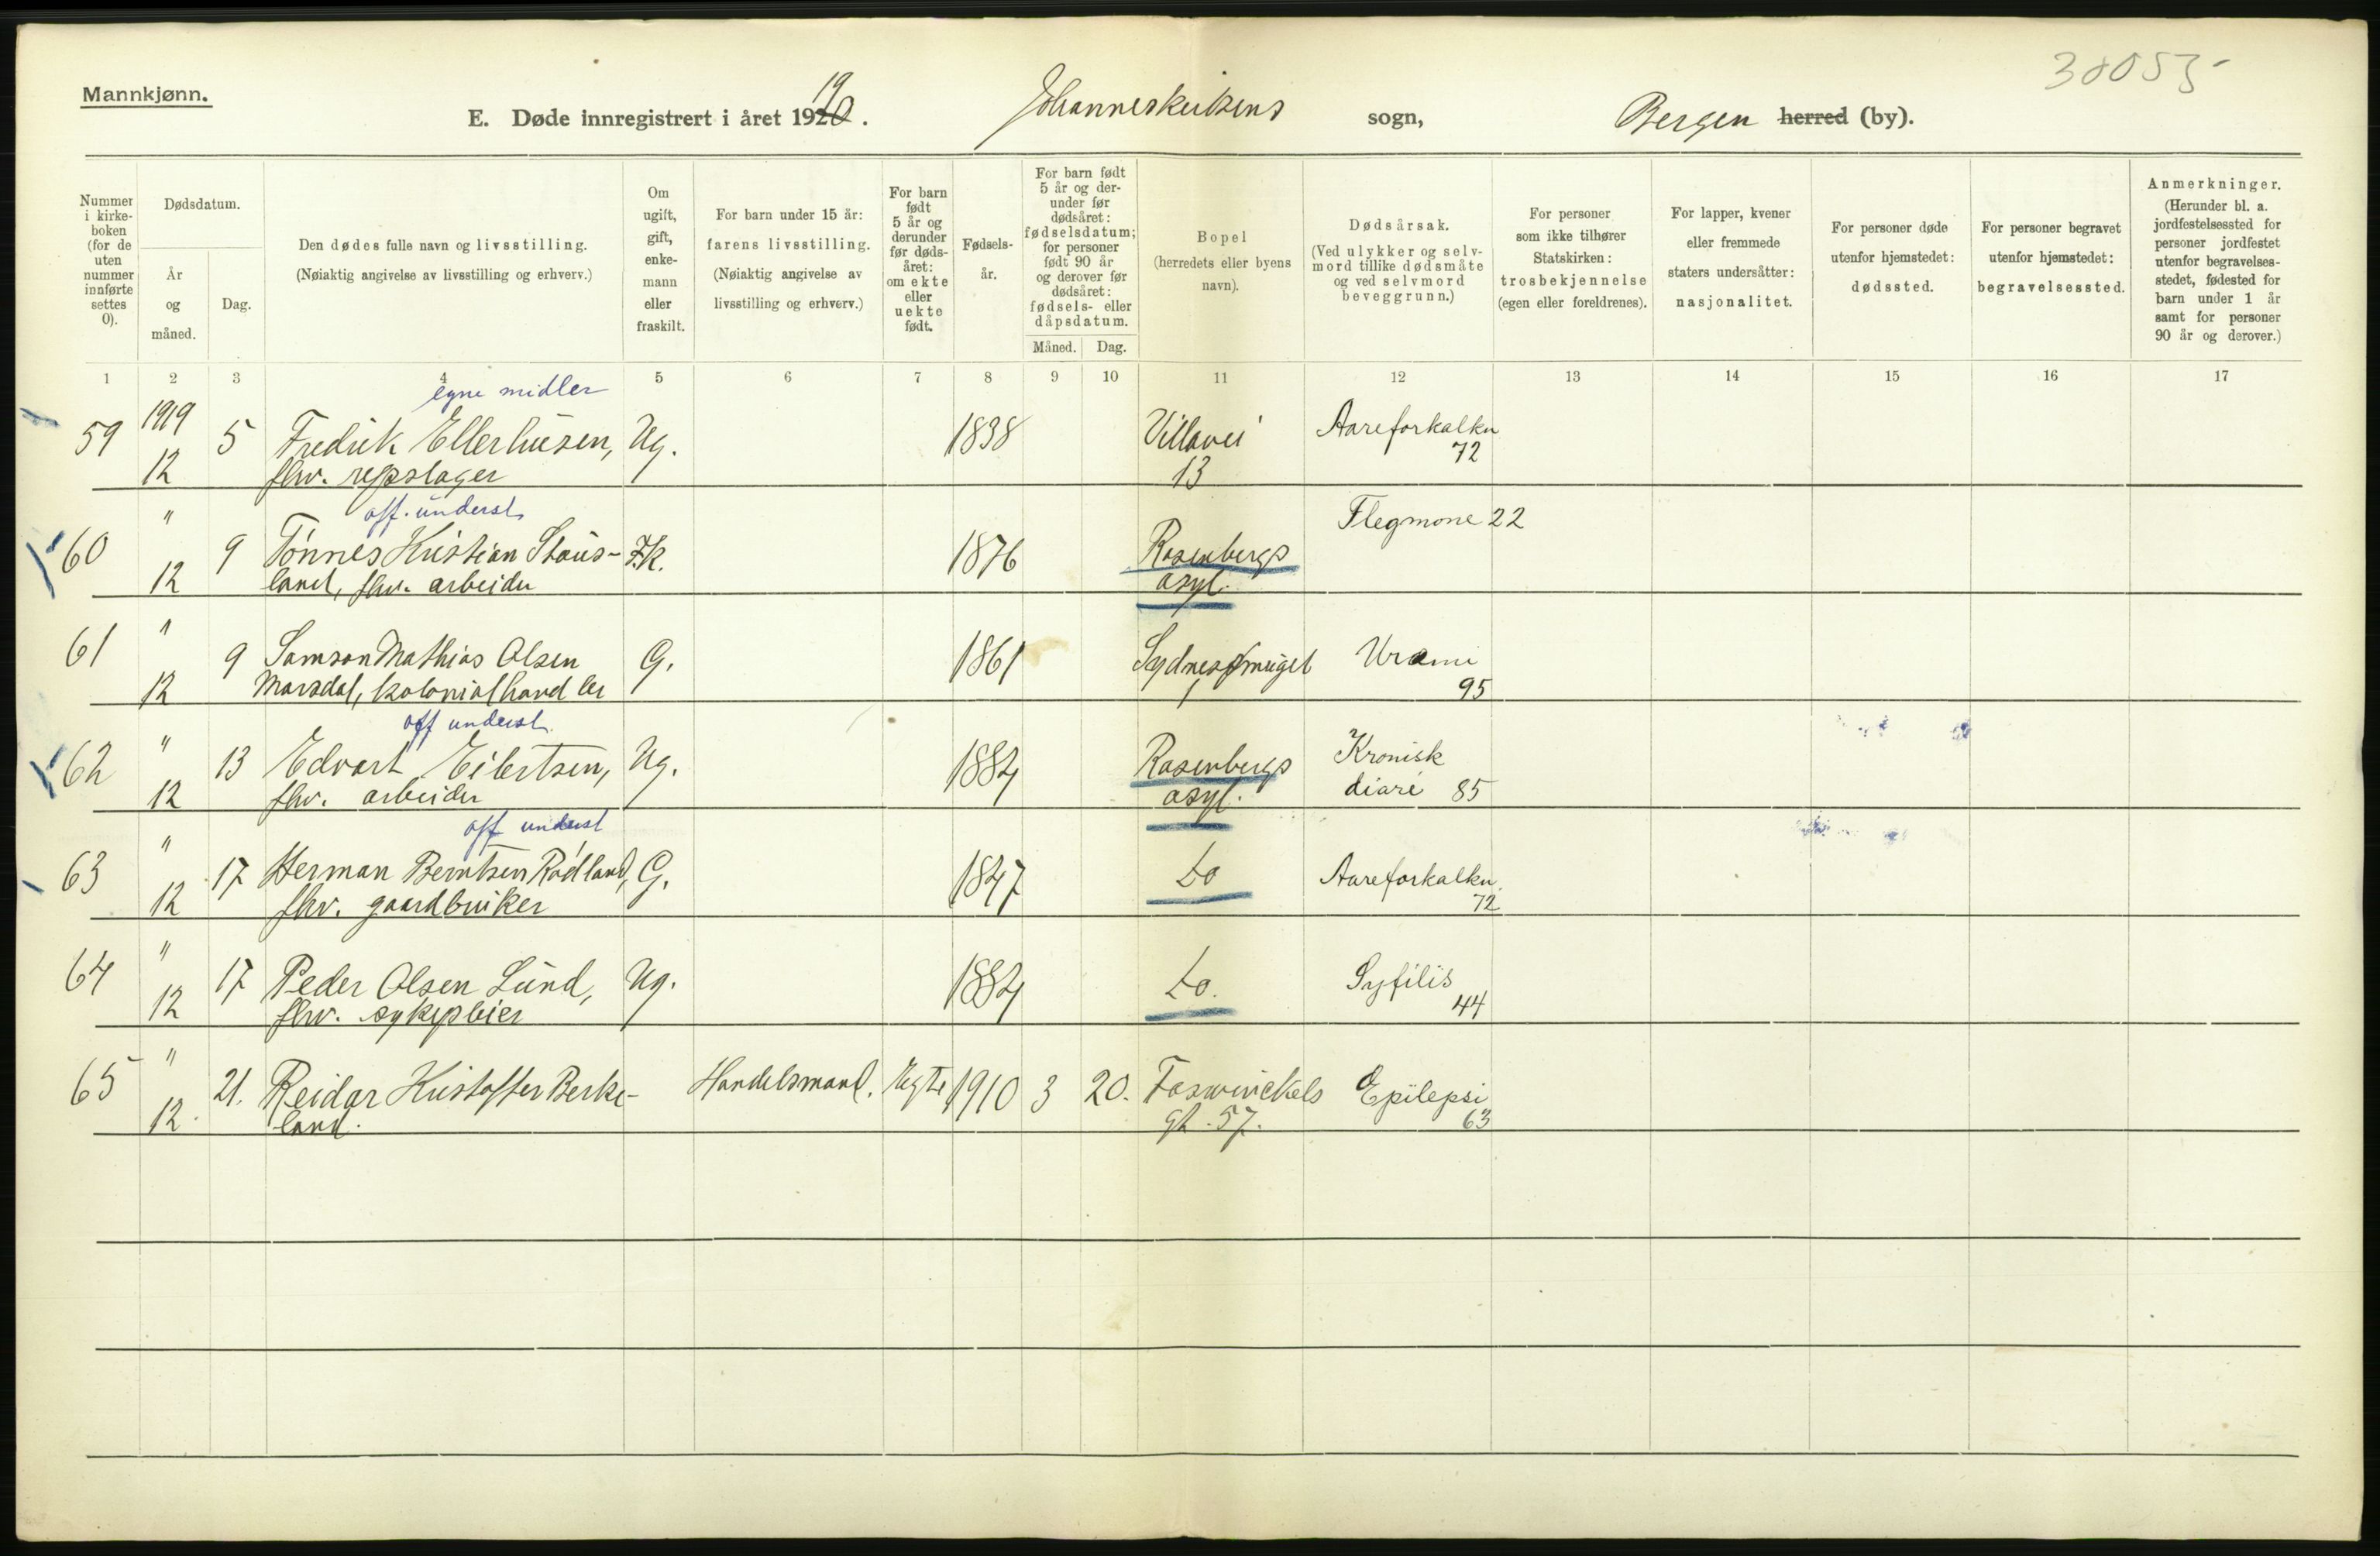 Mannkjønn.
30055
E. Døde innregistrert i året 1920. 19 Johanneskirkens sogn, Bergen herred (by).
Nummer i kirke-boken (for de uten nummer innførte settes 0).
Dødsdatum.
År og måned.
Dag.
Den dødes fulle navn og livsstilling.
(Nøiaktig angivelse av livsstilling og erhverv.)
Om ugift, gift, enke-mann eller fraskilt.
For barn under 15 år: farens livsstilling.
(Nøiaktig angivelse av livsstilling og erhverv.)
For barn født 5 år og derunder før døds-året: om ekte eller uekte født.
Fødsels-år.
For barn født 5 år og der-under før dødsåret: fødselsdatum; for personer født 90 år og derover før dødsåret: fødsels- eller dåpsdatum.
Måned. Dag.
Bopel (herredets eller byens navn).
Dødsårsak.
(Ved ulykker og selv-mord tillike dødsmåte og ved selvmord beveggrunn.)
For personer som ikke tilhører Statskirken: trosbekjennelse (egen eller foreldrenes).
For lapper, kvener eller fremmede staters undersåtter: nasjonalitet.
For personer døde utenfor hjemstedet: dødssted.
For personer begravet utenfor hjemstedet: begravelsessted.
Anmerkninger.
(Herunder bl. a. jordfestelsessted for personer jordfestet utenfor begravelses-stedet, fødested for barn under 1 år samt for personer 90 år og derover.)
1 2 3 4 5 6 7 8 9 10 11 12 13 14 15 16 17
egne midler
59 1919 5 Fredrik Ellerhusen, Ug. 1838 Villavei Aareforkalkn
12 fhv. repslager 13 72
off. underst.
60 " 9 Tønnes Kristian Staus- F.k. 1876 Rosenbergs Flegmone 22
12 land, fhv. arbeider asyl.
61 " 9 Samson Mathias Olsen G. 1861 Sydnessmuget Uræmi
12 Marsdal, kolonialhandler 1 95
off underst.
62 " 13 Edvart Eilertsen, Ug. 1884 Rosenbergs Kronisk
12 fhv. arbeider asyl. diare 85
off underst
63 " 17 Herman Berntsen Rødland, G. 1847 Do Aareforkalkn.
12 fhv. gaardbruker 72
64 " 17 Peder Olsen Lund, Ug. 1884 Do. Syfilis
12 fhv. sykepleier 44
65 " 21. Reidar Kristoffer Berke- Handelsmand. Egte 1910 3 20. Foswinckels Epilepsi
12. land. gt. 57. 63